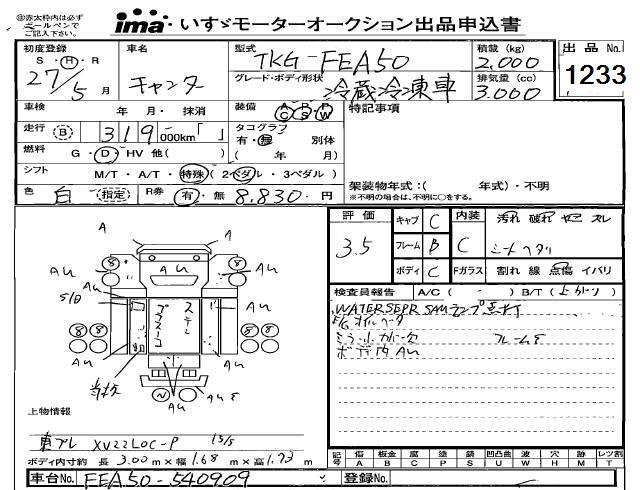 ※赤太枠内は必ず
ボールペンで
ご記入下さい。
ima いすゞモーターオークション出品申込書
初度登録 車名 型式 積載 (kg) 出品 No.
S・H・R TKG-FEA50 2,000
27/5月 キャンター グレード・ボディ形状 排気量 (cc) 1233
冷蔵冷凍車 3.000
車検 年 月・抹消 装備 A P R C S W 特記事項
走行 B 319 000km「 」 タコグラフ
有・無 別体
燃料 G・D・HV 他( ) ( 年 月)
シフト M/T・A/T・特殊(2ペダル・3ペダル) 架装物年式:( 年式)・不明
色 白 (指定) R券 有・無 8.830-円 ※不明の場合は、不明に○をする。
評価 キャブ C 内装 汚れ 破れ ヤニ スレ
3.5 フレーム B C シートヘタリ
ボディ C Fガラス 割れ 線 点傷 イバリ
A A
8 AU 8
AU AU
AU
S/D
8 8 8 8
AU
AU
N
AU AUE
検査員報告 A/C ( - ) B/T (上かり)
WATERSEPR SAMランプ点灯
E/Gオイルケータ
フレームE
ボデ内AU
上物情報
東プレ XV22LOC-P 15/5
ボディ内寸約 長 3.00m×幅 1.68m×高 1.73m
記号 傷 板金 腐 塗 錆 凹凸曲 波 穴 跡 レツ割
A B C P S U W H M T
車台No. FEA50-540909 登録No.